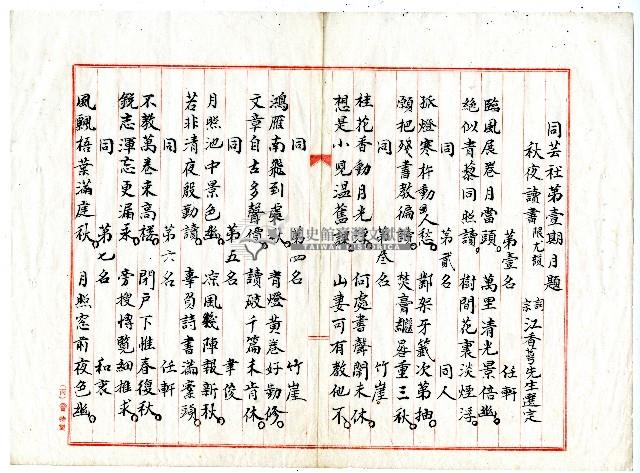 同芸社第壹期月題
秋夜讀書 限尤韻 詞宗 江香蓴先生選定
第壹名 任軒
臨風展卷月當頭。萬里清光景倍幽。
絶似青藜同照讀。樹間花裏淡煙浮。
同 第貳名 同人
孤燈寒柝動人愁。鄴架牙籤次第抽。
願把殘書教徧讀。焚膏繼晷重三秋。
同 第叁名 竹崖
桂花香動月光浮。何處書聲鬧未休。
想是小兒溫舊課。山妻可有教他不。
同 第四名 竹崖
鴻雁南飛到處。青燈黃卷好勤修。
文章自古多聲價。讀破千篇未肯休。
同 第五名 聿俊
月照池中景色幽。凉風幾陣報新秋。
若非清夜殷勤讀。辜負詩書滿案頭。
同 第六名 任軒
不教萬卷束高樓。閉戶下惟春復秋。
銳志渾忘更漏永。旁搜博覽細推求。
同 第七名 和衷
風飄梧葉滿庭秋。月照窓前夜色幽。
國史館臺灣文獻館
TAIWAN HISTORICA